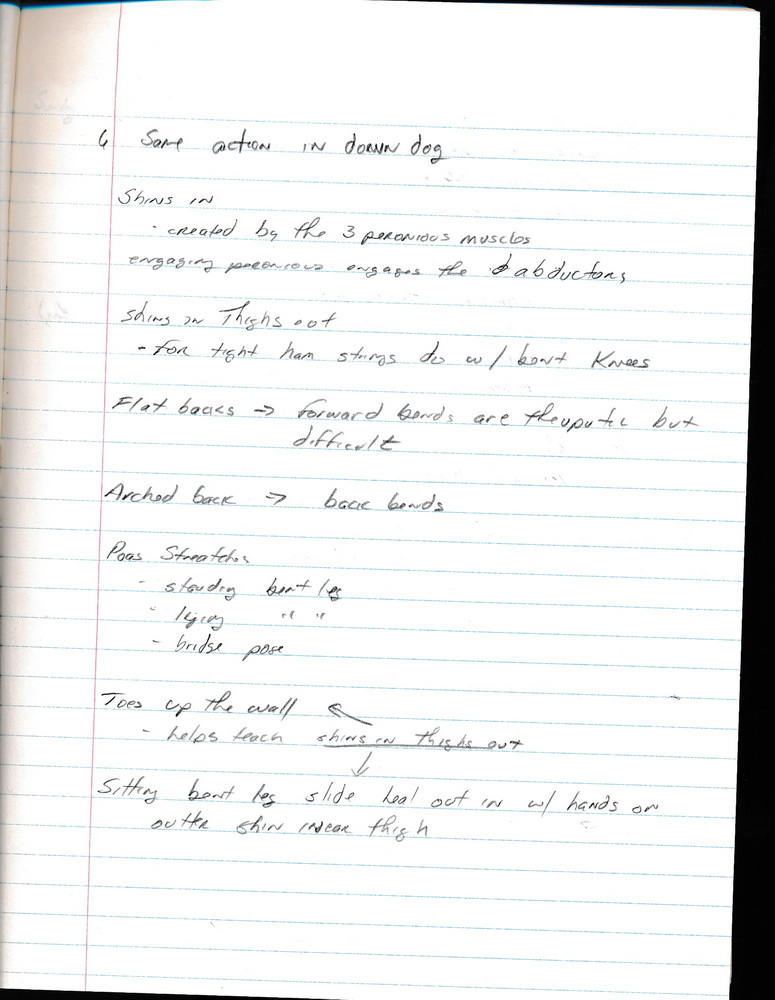 6 Same action in down dog
Shins in
· created by the 3 peronious muscles
engaging peronious engages the abductors
shins in Thighs out
- for tight ham strings do w/ bent Knees
Flat backs → forward bends are theuputic but
difficult
Arched back → back bends
Poas Streatches
- standing bent leg
- lying " "
- bridge pose
Toes up the wall
- helps teach shins in thighs out
Sitting bent leg slide heal out in w/ hands on
outter shin innear thigh